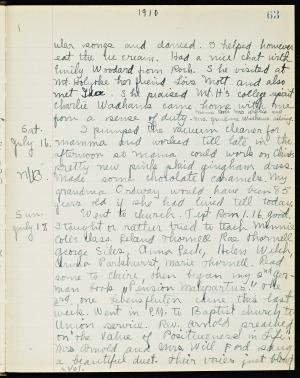 1910
63
ular songs and danced. I helped however
eat the ice cream. Had a nice chat with
Emily Woodard from Rock. She visited at
Mt. Holyoke her friend Lois Mott and also
met Thea. She praised Mt. H's college spirit
Charlie Wadhams came home with me
from a sense of duty.
Sat. I pumped the vacuum cleaner for
July 16. mamma and worked till late in the
afternoon so mama could work on Claire's
pretty new pink skid gingham dress.
Made some chocolate caramels. My
grandma Ordway would have been 85
years old if she had lived till today.
Sun. Went to church. Text Rom 1.16, good.
July 17 I taught or rather tried to teach Minnie
Coles class. Leland Thornell, Rae Thornell
George Siles, Anna Peck, Helen Welch,
Anna Parkhurst, Marie Thornell. Read
some to Claire, then began my 3rd Ger-
man book "Pension Malepartus." The
3rd one Lebensfluten came this last
week. Went in P.M. to Baptist church to
Union service. Rev. Arnold preached
on the Value of Positiveness in Life.
Mrs Arnold and Mrs Will Ford sang
a beautiful duet. Their voices just blend